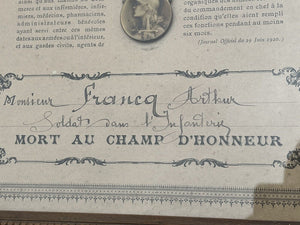 merce et aux infirmières, infir-
miers, médecins, pharmaciens,
administrateurs, décédés
ayant servi au moins aux mêmes
dates aux armées ou à l'intérieur,
et aux gardes civils, agents de
du commandement ce chef à la
condition qu'elles aient rempli
ces fonctions pendant au moins
six mois.
(Journal Officiel du 29 Juin 1920.)
Monsieur Francq Arthur
Soldat dans l'Infanterie
MORT AU CHAMP D'HONNEUR